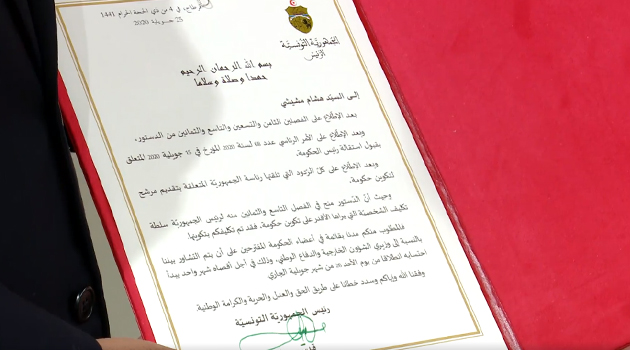 قرطاج، في 4 من ذي الحجة الحرام 1441
25 جويلية 2020
الجمهوريّة التونسيّة
الرئيس
بسم الله الرحمان الرحيم
حمدا وصلاة وسلاما
إلى السيّد هشام مشيشي
بعد الاطّلاع على الفصلين الثامن والتسعين والتاسع والثمانين من الدستور،
وبعد الاطّلاع على الأمر الرئاسي عدد 68 لسنة 2020 المؤرخ في 15 جويلية 2020 المتعلق
بقبول استقالة رئيس الحكومة،
وبعد الاطّلاع على كلّ الردود التي تلقتها رئاسة الجمهوريّة المتعلقة بتقديم مرشح
لتكوين حكومة،
وحيث أنّ الدّستور منح في الفصل التاسع والثمانين منه لرئيس الجمهوريّة سلطة
تكليف الشخصيّة التي يراها الأقدر على تكوين حكومة، فقد تم تكليفكم بتكوينها.
فالمطلوب منكم مدنا بقائمة في أعضاء الحكومة المقترحين على أن يتم التشاور بيننا
بالنسبة إلى وزيري الشؤون الخارجية والدفاع الوطني، وذلك في أجل أقصاه شهر واحد يبدأ
احتسابه انطلاقا من يوم الأحد 26 من شهر جويلية الجاري.
وفقنا الله وإياكم وسدد خطانا على طريق الحق والعدل والحرية والكرامة الوطنية.
رئيس الجمهوريّة التونسيّة